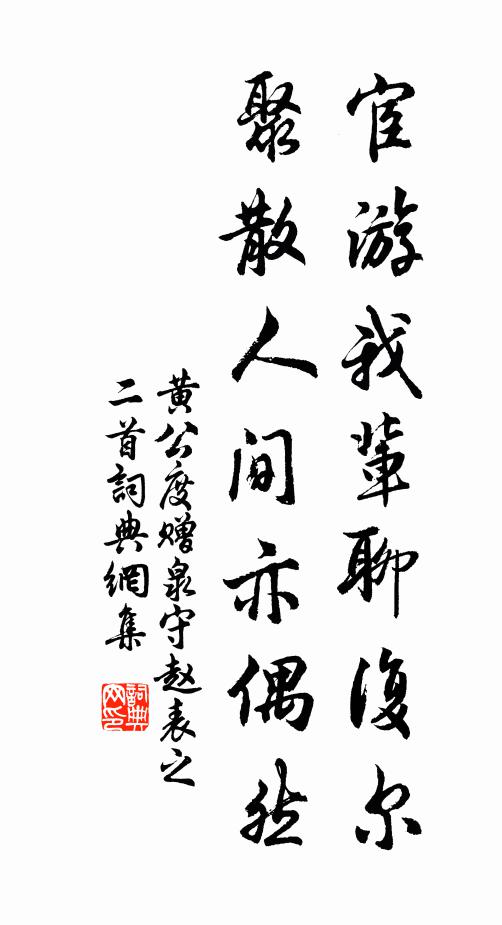 宦游我輩聊復尔
聚散人间亦偶然
黄公度赠泉守赵表之
二首詞典網集
詞典
网印